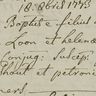 18. Obris 1773
Baptise filius
Loon et helene
Conjug: Suscep:
hout et petroni